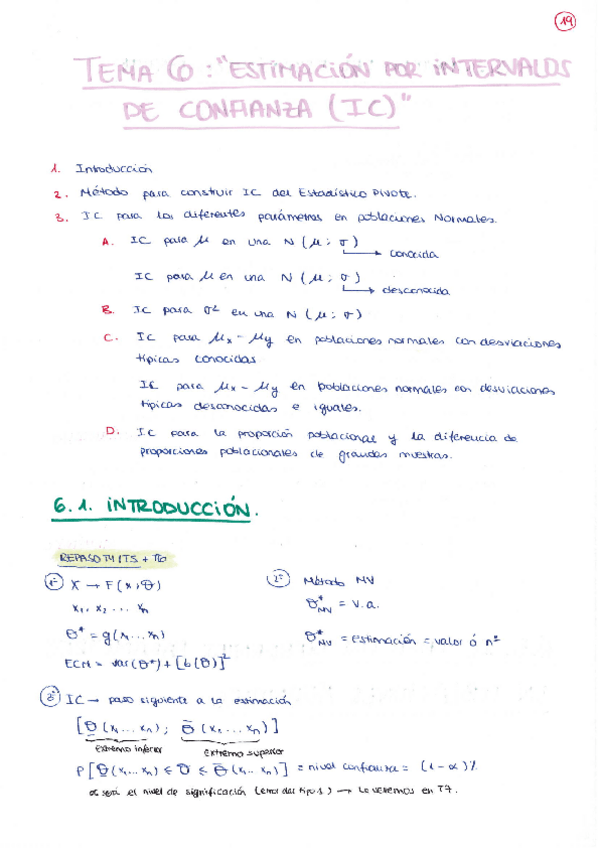 19
TEMA 6: "ESTIMACIÓN POR INTERVALOS
DE CONFIANZA (IC)"
1. Introducción
2. Método para construir IC del Estadístico Pivote.
3. IC para los diferentes parámetros en poblaciones Normales.
A. IC para μ en una N(μ; σ)
conocida
IC para μ en una N(μ; σ)
desconocida
B. IC para σ² en una N(μ; σ)
C. IC para μx - μy en poblaciones normales con desviaciones
típicas conocidas
IC para μx - μy en poblaciones normales con desviaciones
típicas desconocidas e iguales.
D. IC para la proporción poblacional y la diferencia de
proporciones poblacionales de grandes muestras.
6.1. INTRODUCCIÓN.
REPASO T4/T5 + T6
1º X → F(x, θ)
x₁, x₂ ... xn
θ* = g(x₁...xn)
ECM = var(θ*) + [b(θ)]²
2º Método MV
θ*MV = v.a.
θ*MV = estimación = valor ó nº
3º IC → paso siguiente a la estimación
[θ(x₁...xn); θ̄(x₁...xn)]
extremo inferior extremo superior
P[θ(x₁...xn) ≤ θ ≤ θ̄(x₁...xn)] = nivel confianza = (1-α)%
α será el nivel de significación (error del tipo 1) → Lo veremos en T7.